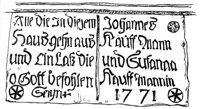 Alle die in diesem
Haus gehn aus
und Ein Las die
o Gott befohlen
Seyn
Johannes
Kauffmann
und Susanna
Kauffmannin
1771